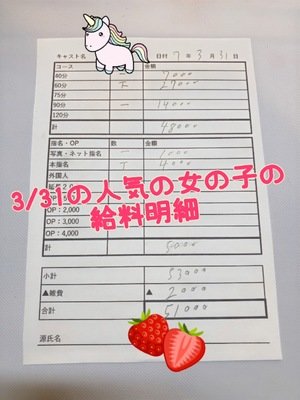 キャスト名 日付 7年3月31日
コース 金額
40分 一 7000
60分 下 27000
75分
90分 一 14000
120分
計 48000
指名・OP 数 金額
写真・ネット指名 一 1000
本指名 T 4000
外国人
3/31の人気の女の子の
給料明細
OP:2,000
OP:3,000
OP:4,000
計 5000
小計 53000
▲雑費 ▲ 2000
合計 51000
源氏名